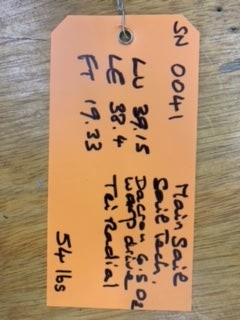 SN 0041
LU 39.15
LE 38.4
FT 19.33
Main Sail
Sail Tech.
Dacron 6.5 Oz
Warp drive
Tri Radial
54 lbs